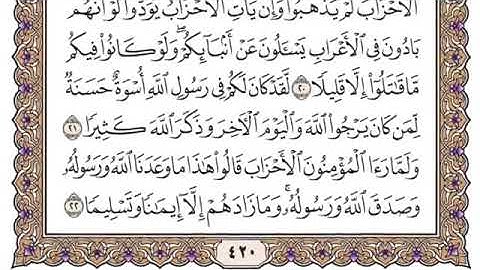 ٱلۡأَحۡزَابَ لَمۡ يَذۡهَبُواْۖ وَإِن يَأۡتِ ٱلۡأَحۡزَابُ يَوَدُّواْ لَوۡ أَنَّهُم
بَادُونَ فِي ٱلۡأَعۡرَابِ يَسۡـَٔلُونَ عَنۡ أَنۢبَآئِكُمۡۖ وَلَوۡ كَانُواْ فِيكُم
مَّا قَٰتَلُوٓاْ إِلَّا قَلِيلٗا ٢٠ لَّقَدۡ كَانَ لَكُمۡ فِي رَسُولِ ٱللَّهِ أُسۡوَةٌ حَسَنَةٞ
لِّمَن كَانَ يَرۡجُواْ ٱللَّهَ وَٱلۡيَوۡمَ ٱلۡأٓخِرَ وَذَكَرَ ٱللَّهَ كَثِيرٗا ٢١
وَلَمَّا رَءَا ٱلۡمُؤۡمِنُونَ ٱلۡأَحۡزَابَ قَالُواْ هَٰذَا مَا وَعَدَنَا ٱللَّهُ وَرَسُولُهُۥ
وَصَدَقَ ٱللَّهُ وَرَسُولُهُۥۚ وَمَا زَادَهُمۡ إِلَّآ إِيمَٰنٗا وَتَسۡلِيمٗا ٢٢
٤٢٠